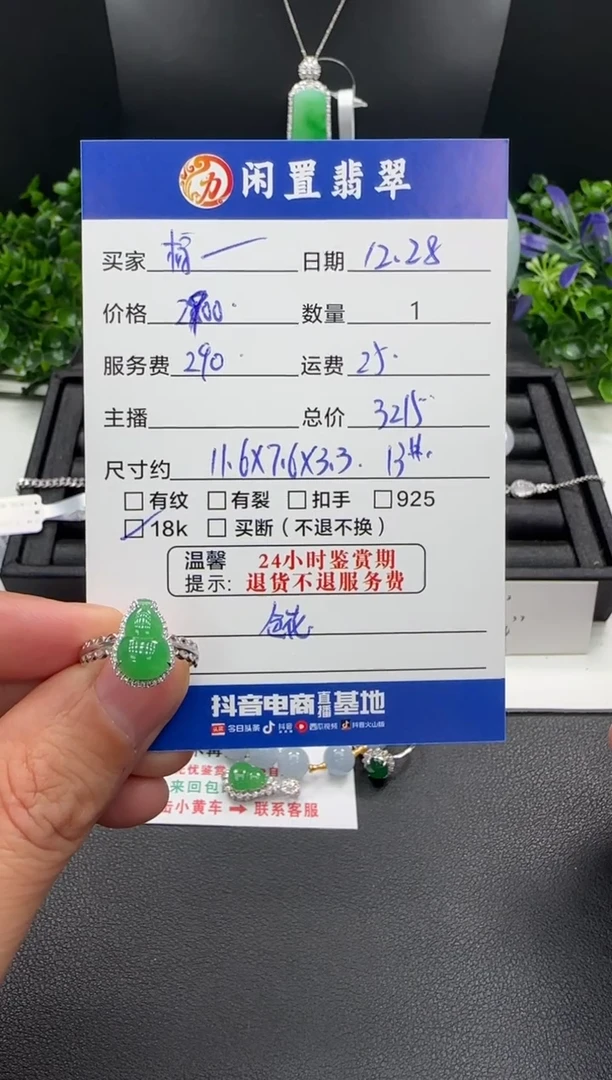 闲置翡翠
买家 日期 12.28
价格 2900 数量 1
服务费 290 运费 25
主播 总价 3215
尺寸约 11.6X7.6X3.3. 13#.
□有纹 □有裂 □扣手 □925
□18k □买断（不退不换）
温馨提示: 24小时鉴赏期
退货不退服务费
抖音电商直播基地
今日头条 抖音 西瓜视频 抖音火山版
来回包
击小黄车 → 联系客服